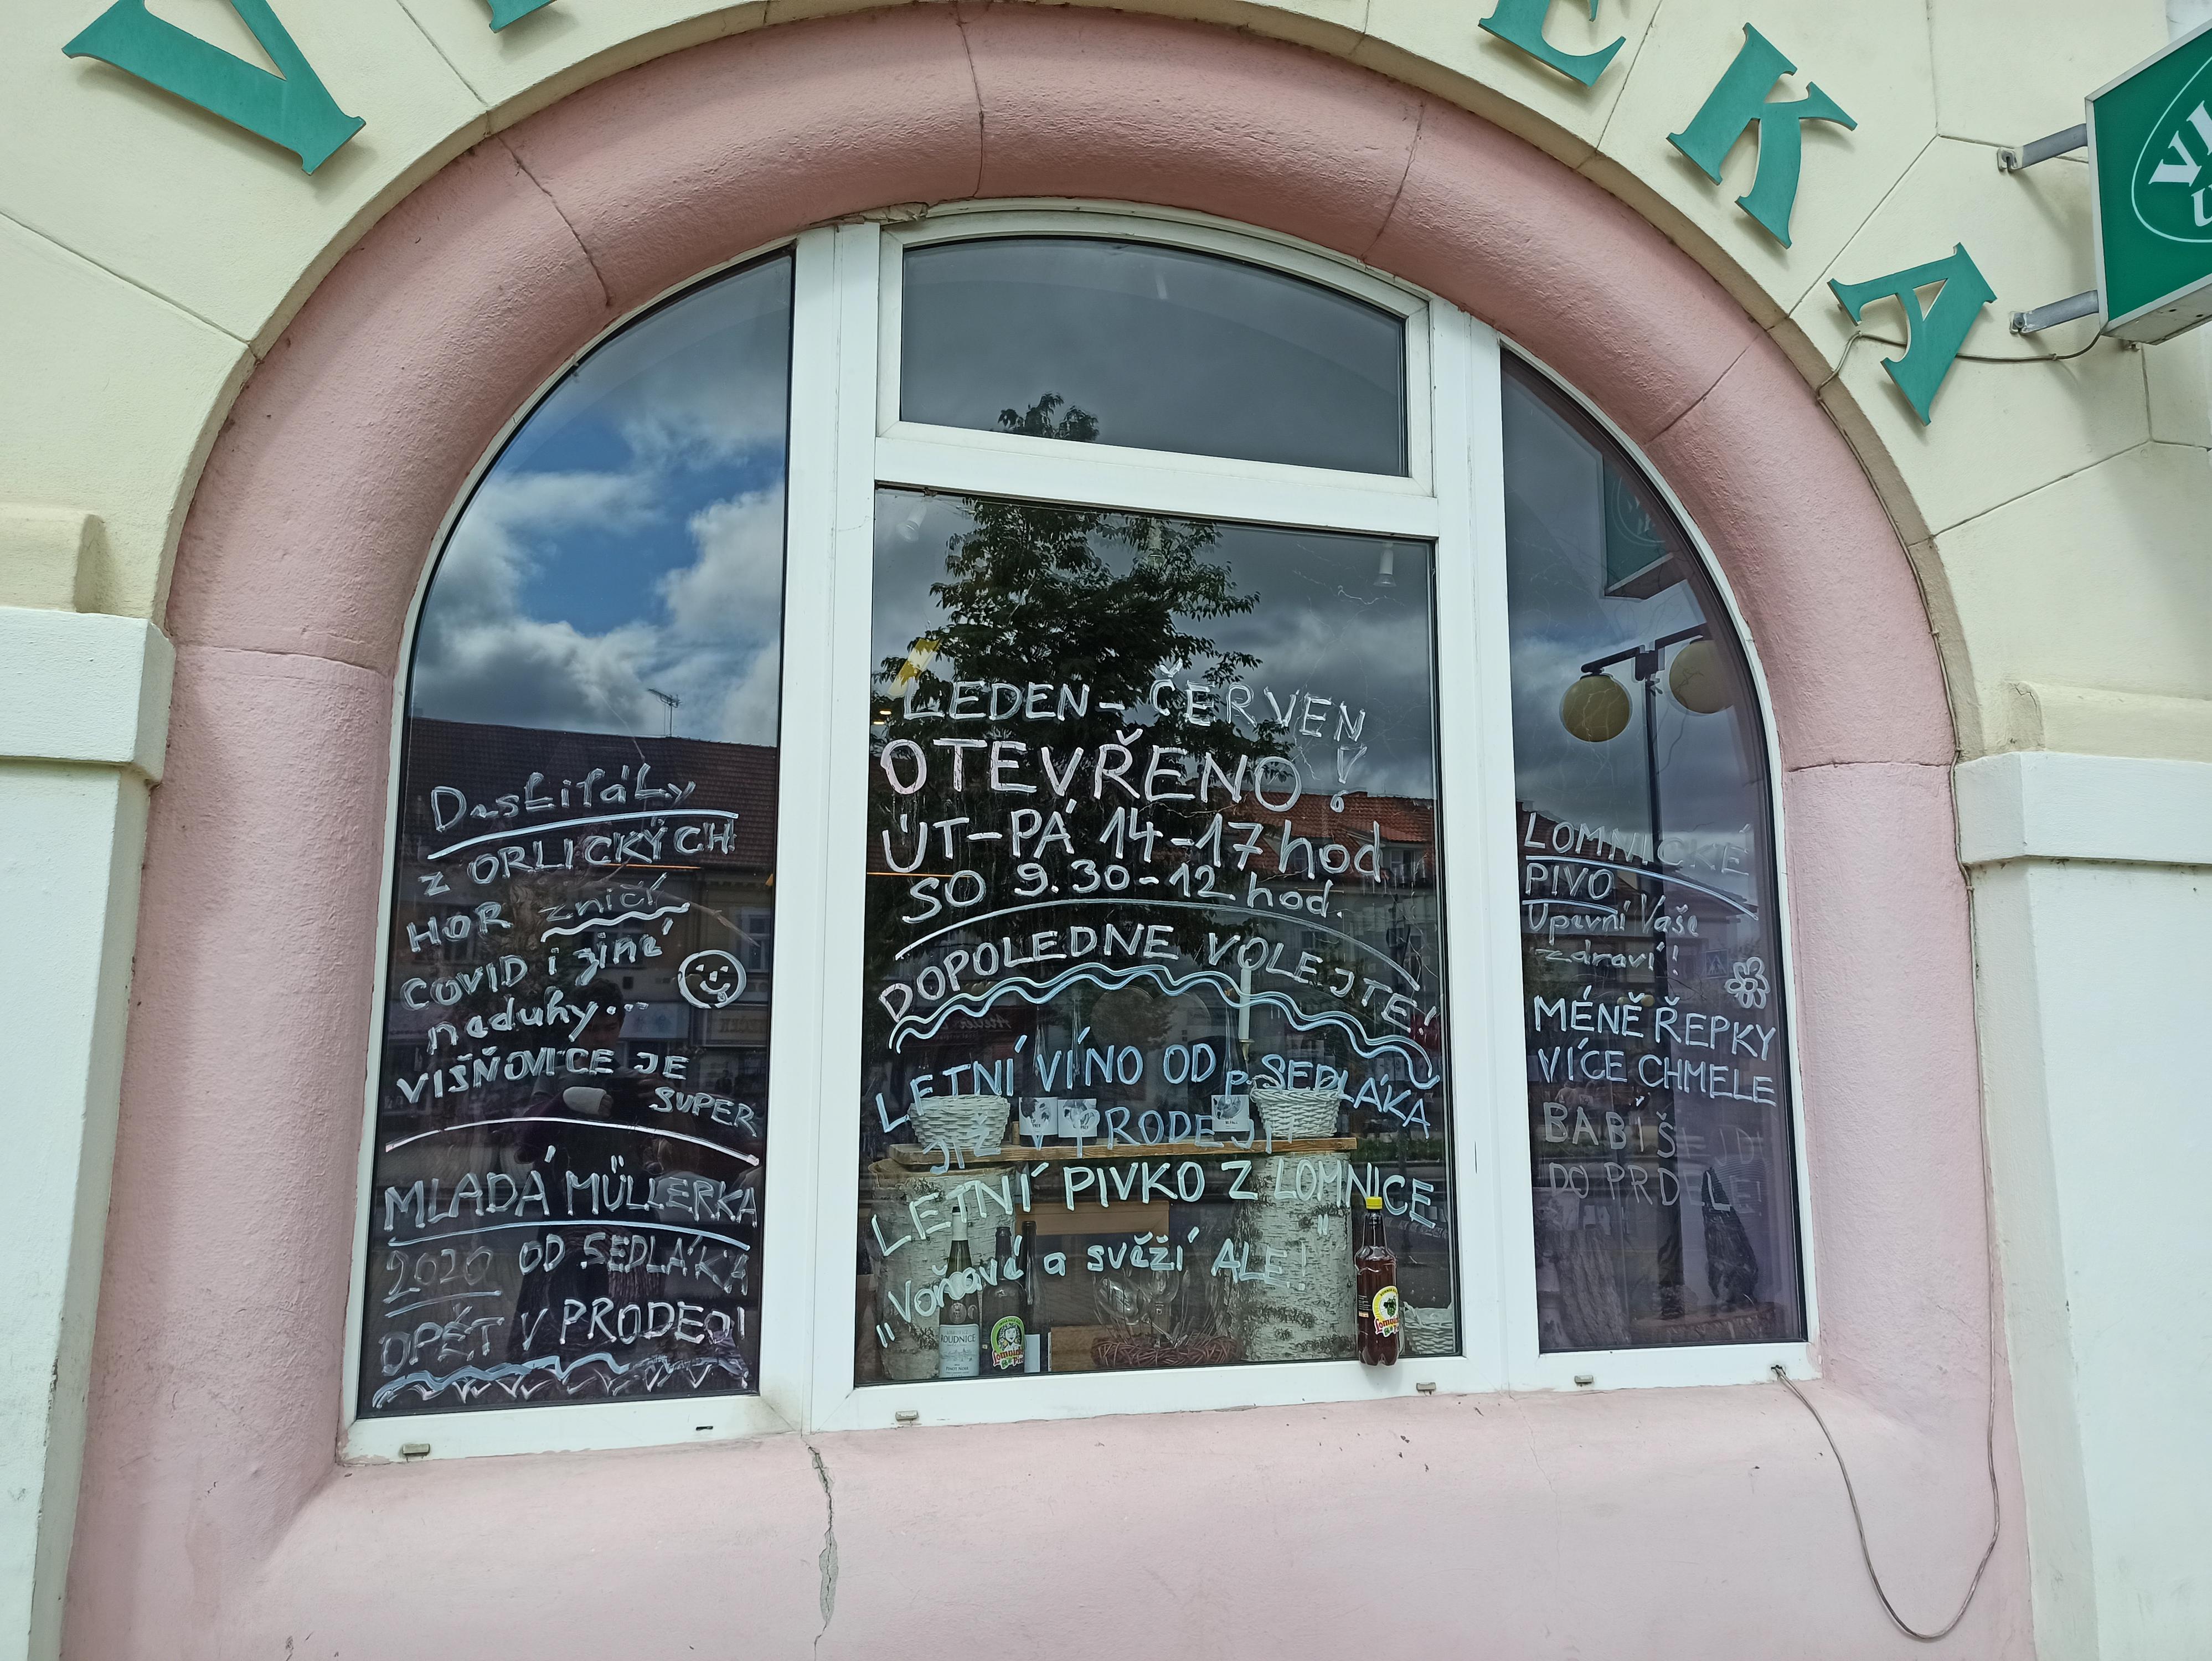 E K A
Destiláty
z ORLICKÝCH
HOR zničí
COVID i jiné
neduhy...
VIŠŇOVICE JE
SUPER
MLADÁ MÜLLERKA
2020 OD SEDLÁKA
OPĚT V PRODEJI
LEDEN - ČERVEN
OTEVŘENO!
ÚT-PÁ 14-17 hod
SO 9.30-12 hod.
DOPOLEDNE VOLEJTE!
LETNÍ VÍNO OD P. SEDLÁKA
JIŽ V PRODEJI
LETNÍ PIVKO Z LOMNICE
"Voňavé a svěží ALE!"
ROUDNICE
LOMNICKÉ
PIVO
Upevní Vaše
zdraví!
MÉNĚ ŘEPKY
VÍCE CHMELE
BABIŠI JDI
DO PRDELE!